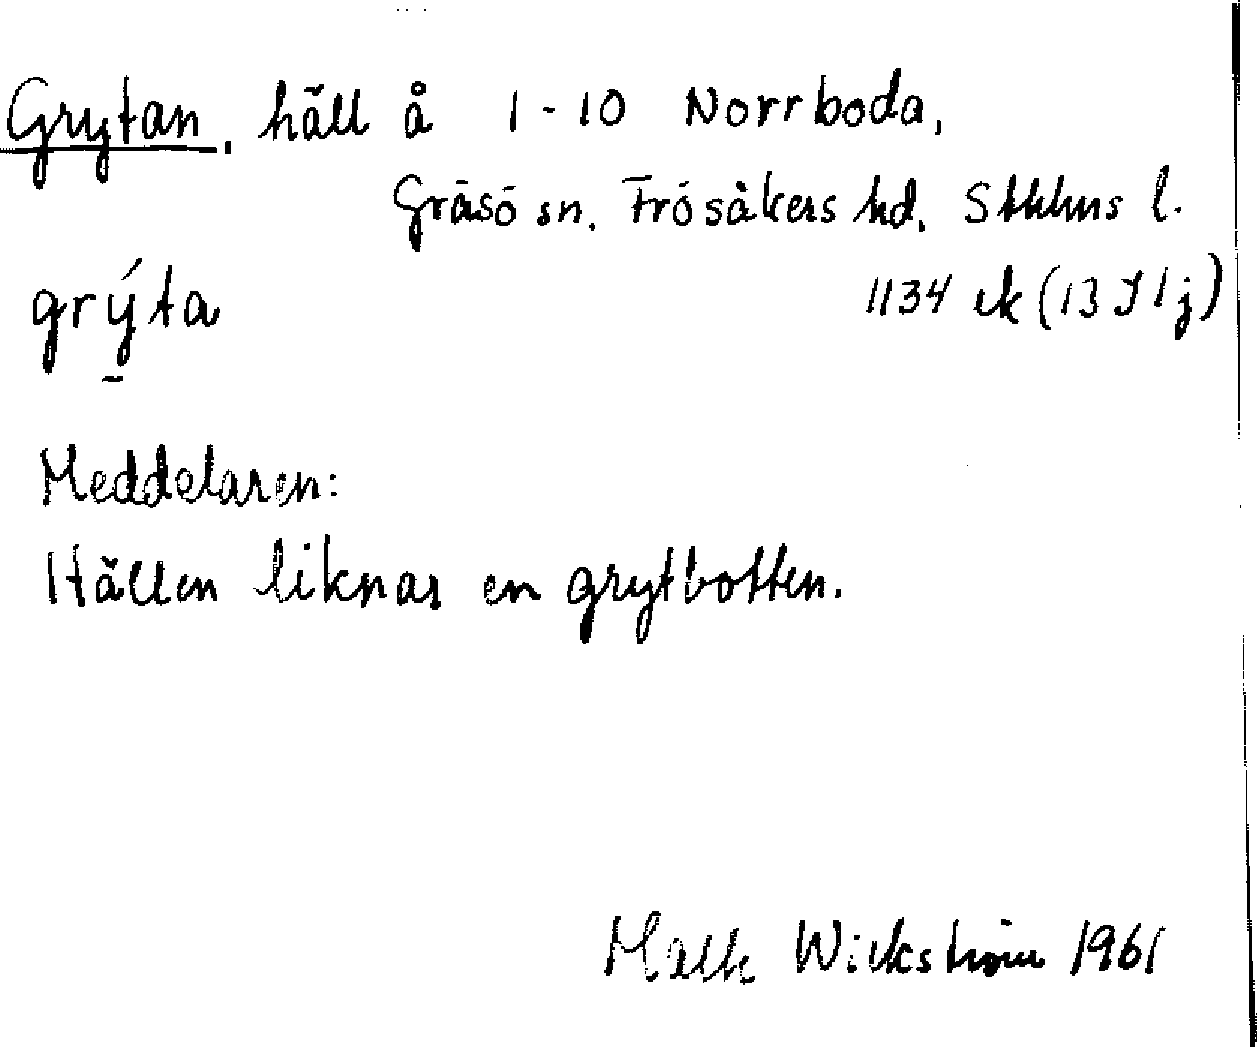 Grytan, häll å 1-10 Norrboda,
Gräsö sn. Frösåkers hd. Sthlms l.
grýta 1134 ek (13 I 1 j)
Meddelaren:
Hällen liknar en grytbotten.
Wickström 1961